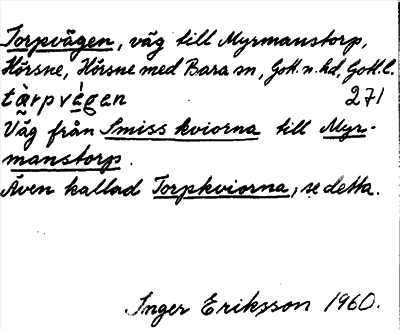 Torpvägen, väg till Myrmanstorp,
Hörsne, Hörsne med Bara sn, Gotl. n. hd, Gotl. l.
tàrpvè̠gen 271
Väg från Smiss kviorna till Myr-
manstorp.
Även kallad Torpkviorna, se detta.
Inger Eriksson 1960.